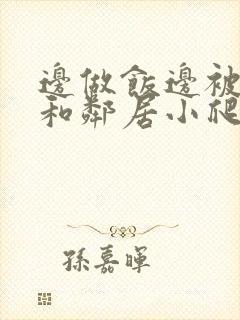 邊做飯邊被
和鄰居小爬
孫嘉暉